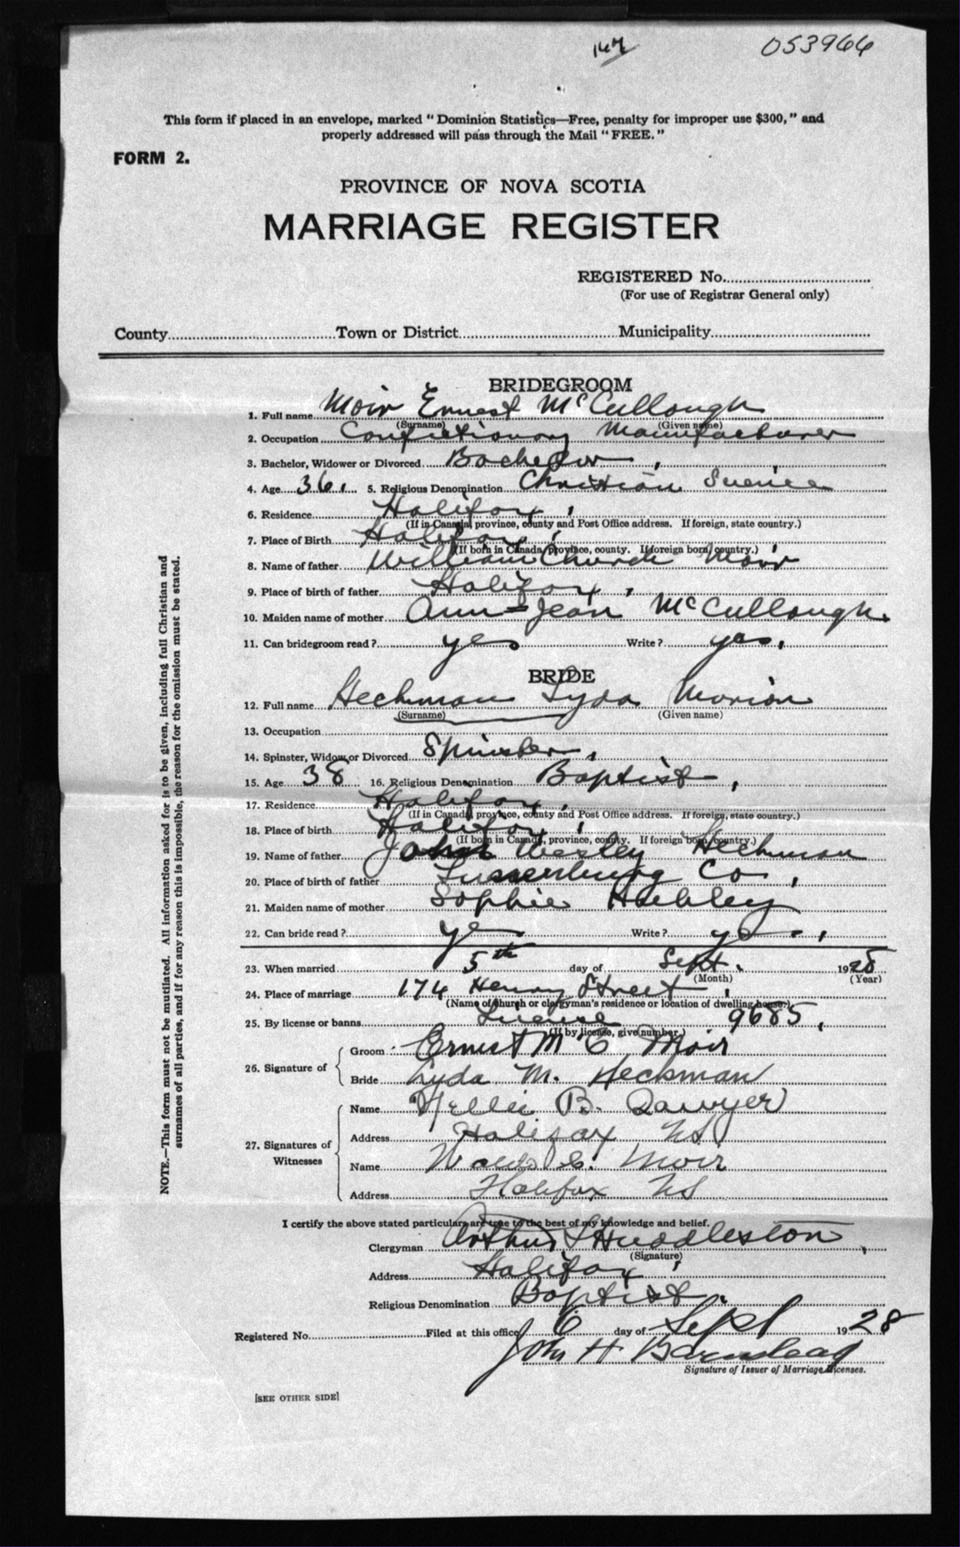 147 053966
This form if placed in an envelope, marked "Dominion Statistics—Free, penalty for improper use $300," and
properly addressed will pass through the Mail "FREE."
FORM 2.
PROVINCE OF NOVA SCOTIA
MARRIAGE REGISTER
REGISTERED No.
(For use of Registrar General only)
County Town or District Municipality
BRIDEGROOM
1. Full name Moir Ernest McCullough
(Surname) (Given name)
2. Occupation Confectionary Manufacturer
3. Bachelor, Widower or Divorced Bachelor,
4. Age 36. 5. Religious Denomination Christian Science
6. Residence Halifax,
(If in Canada, province, county and Post Office address. If foreign, state country.)
7. Place of Birth Halifax,
(If born in Canada, province, county. If foreign born, country.)
8. Name of father William Church Moir
9. Place of birth of father Halifax,
10. Maiden name of mother Ann-Jean McCullough.
11. Can bridegroom read? yes Write? yes.
BRIDE
12. Full name Heckman Lyda Marion
(Surname) (Given name)
13. Occupation
14. Spinster, Widow or Divorced Spinster,
15. Age 38 16. Religious Denomination Baptist,
17. Residence Halifax,
(If in Canada, province, county and Post Office address. If foreign, state country.)
18. Place of birth Halifax,
(If born in Canada, province, county. If foreign born, country.)
19. Name of father John Wesley Heckman
20. Place of birth of father Lunenburg Co.,
21. Maiden name of mother Sophie Hebley
22. Can bride read? yes Write? yes,
23. When married 5th day of Sept. 1928
(Month) (Year)
24. Place of marriage 174 Henry Street,
(Name of church or clergyman's residence or location of dwelling house)
25. By license or banns License 9685,
(If by license, give number.)
26. Signature of Groom Ernest McC Moir
Bride Lyda M. Heckman
27. Signatures of Witnesses Name Nellie B. Sawyer
Address Halifax NS
Name C. Moir
Address Halifax NS
I certify the above stated particulars are true to the best of my knowledge and belief.
Clergyman Arthur S Huddleston,
(Signature)
Address Halifax,
Religious Denomination Baptist.
Registered No. Filed at this office 6 day of Sept 1928
John H Barnstead
Signature of Issuer of Marriage Licenses.
[SEE OTHER SIDE]
NOTE.—This form must not be mutilated. All information asked for is to be given, including full Christian and
surnames of all parties, and if for any reason this is impossible, the reason for the omission must be stated.